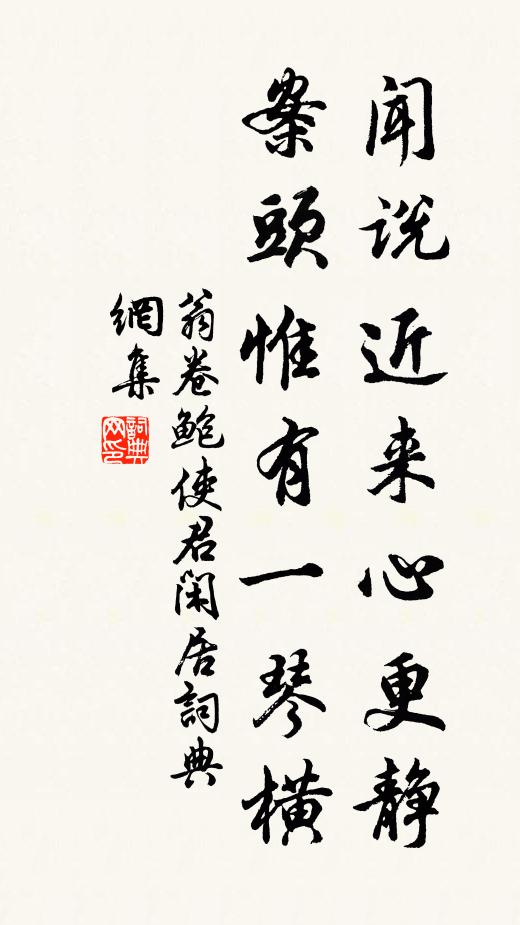 闻说近来心更静
案頭惟有一琴横
翁卷鮑使君闲居詞典
網集
詞典网印